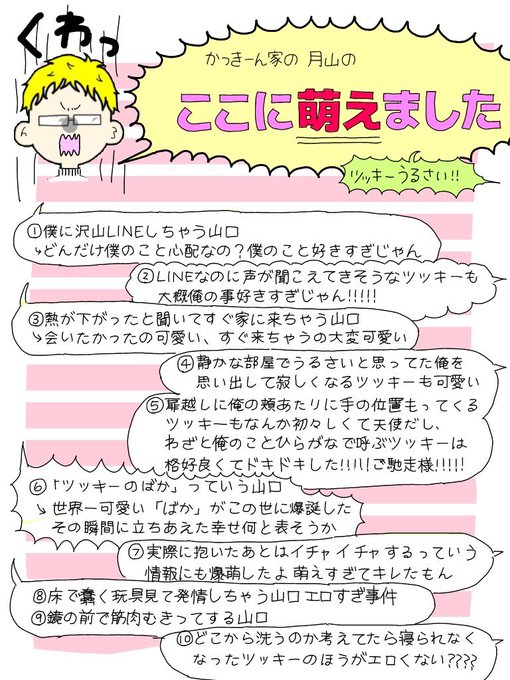 くわっ
かっきーん家の 月山の
ここに萌えました
ツッキーうるさい!!
①僕に沢山LINEしちゃう山口
↳どんだけ僕のこと心配なの？僕のこと好きすぎじゃん
②LINEなのに声が聞こえてきそうなツッキーも
大概俺の事好きすぎじゃん!!!!!
③熱が下がったと聞いてすぐ家に来ちゃう山口
↳会いたかったの可愛い、すぐ来ちゃうの大変可愛い
④静かな部屋でうるさいと思ってた俺を
思い出して寂しくなるツッキーも可愛い
⑤扉越しに俺の頬あたりに手の位置もってくる
ツッキーもなんか初々しくて天使だし、
わざと俺のことひらがなで呼ぶツッキーは
格好良くてドキドキした!!!!!ご馳走様!!!!!
⑥「ツッキーのばか」っていう山口
↳世界一可愛い「ばか」がこの世に爆誕した
その瞬間に立ちあえた幸せ何と表そうか
⑦実際に抱いたあとはイチャイチャするっていう
情報にも爆萌したよ 萌えすぎてキレたもん
⑧床で蠢く玩具見て発情しちゃう山口エロすぎ事件
⑨鏡の前で筋肉むきってする山口
⑩どこから洗うのか考えてたら寝られなく
なったツッキーのほうがエロくない????